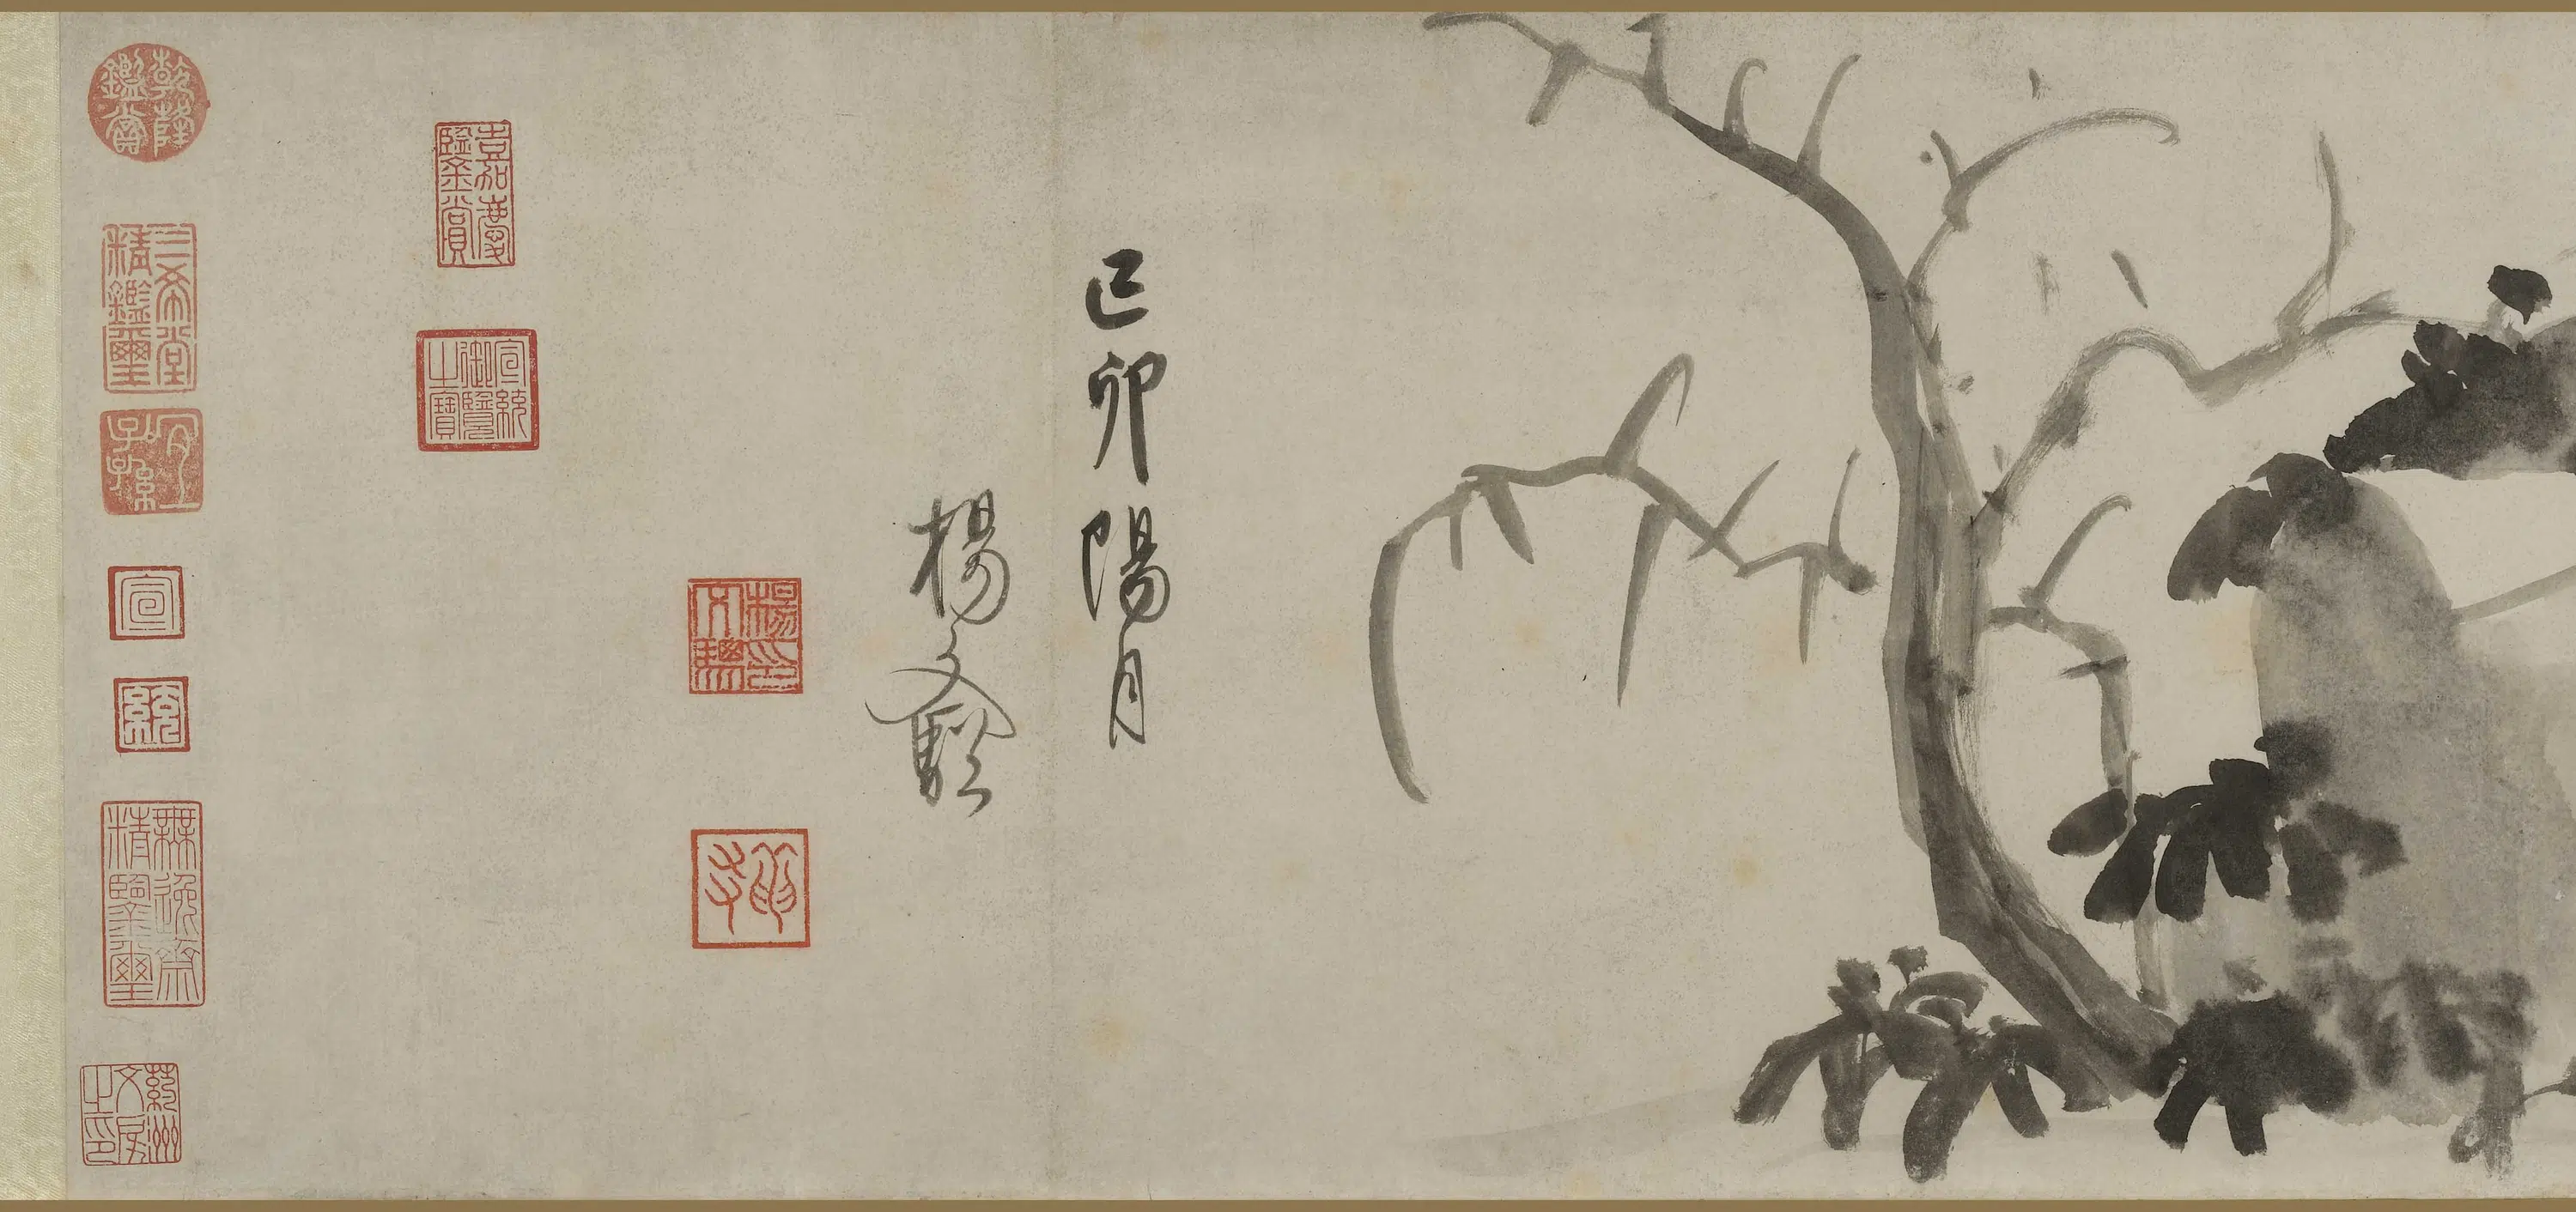 己卯陽月
楊文驄
楊文驄印
嘉慶鑒賞
宣統御覽之寶
乾隆鑑賞
三希堂精鑑璽
宜子孫
宣
統
無逸齋精鑒璽